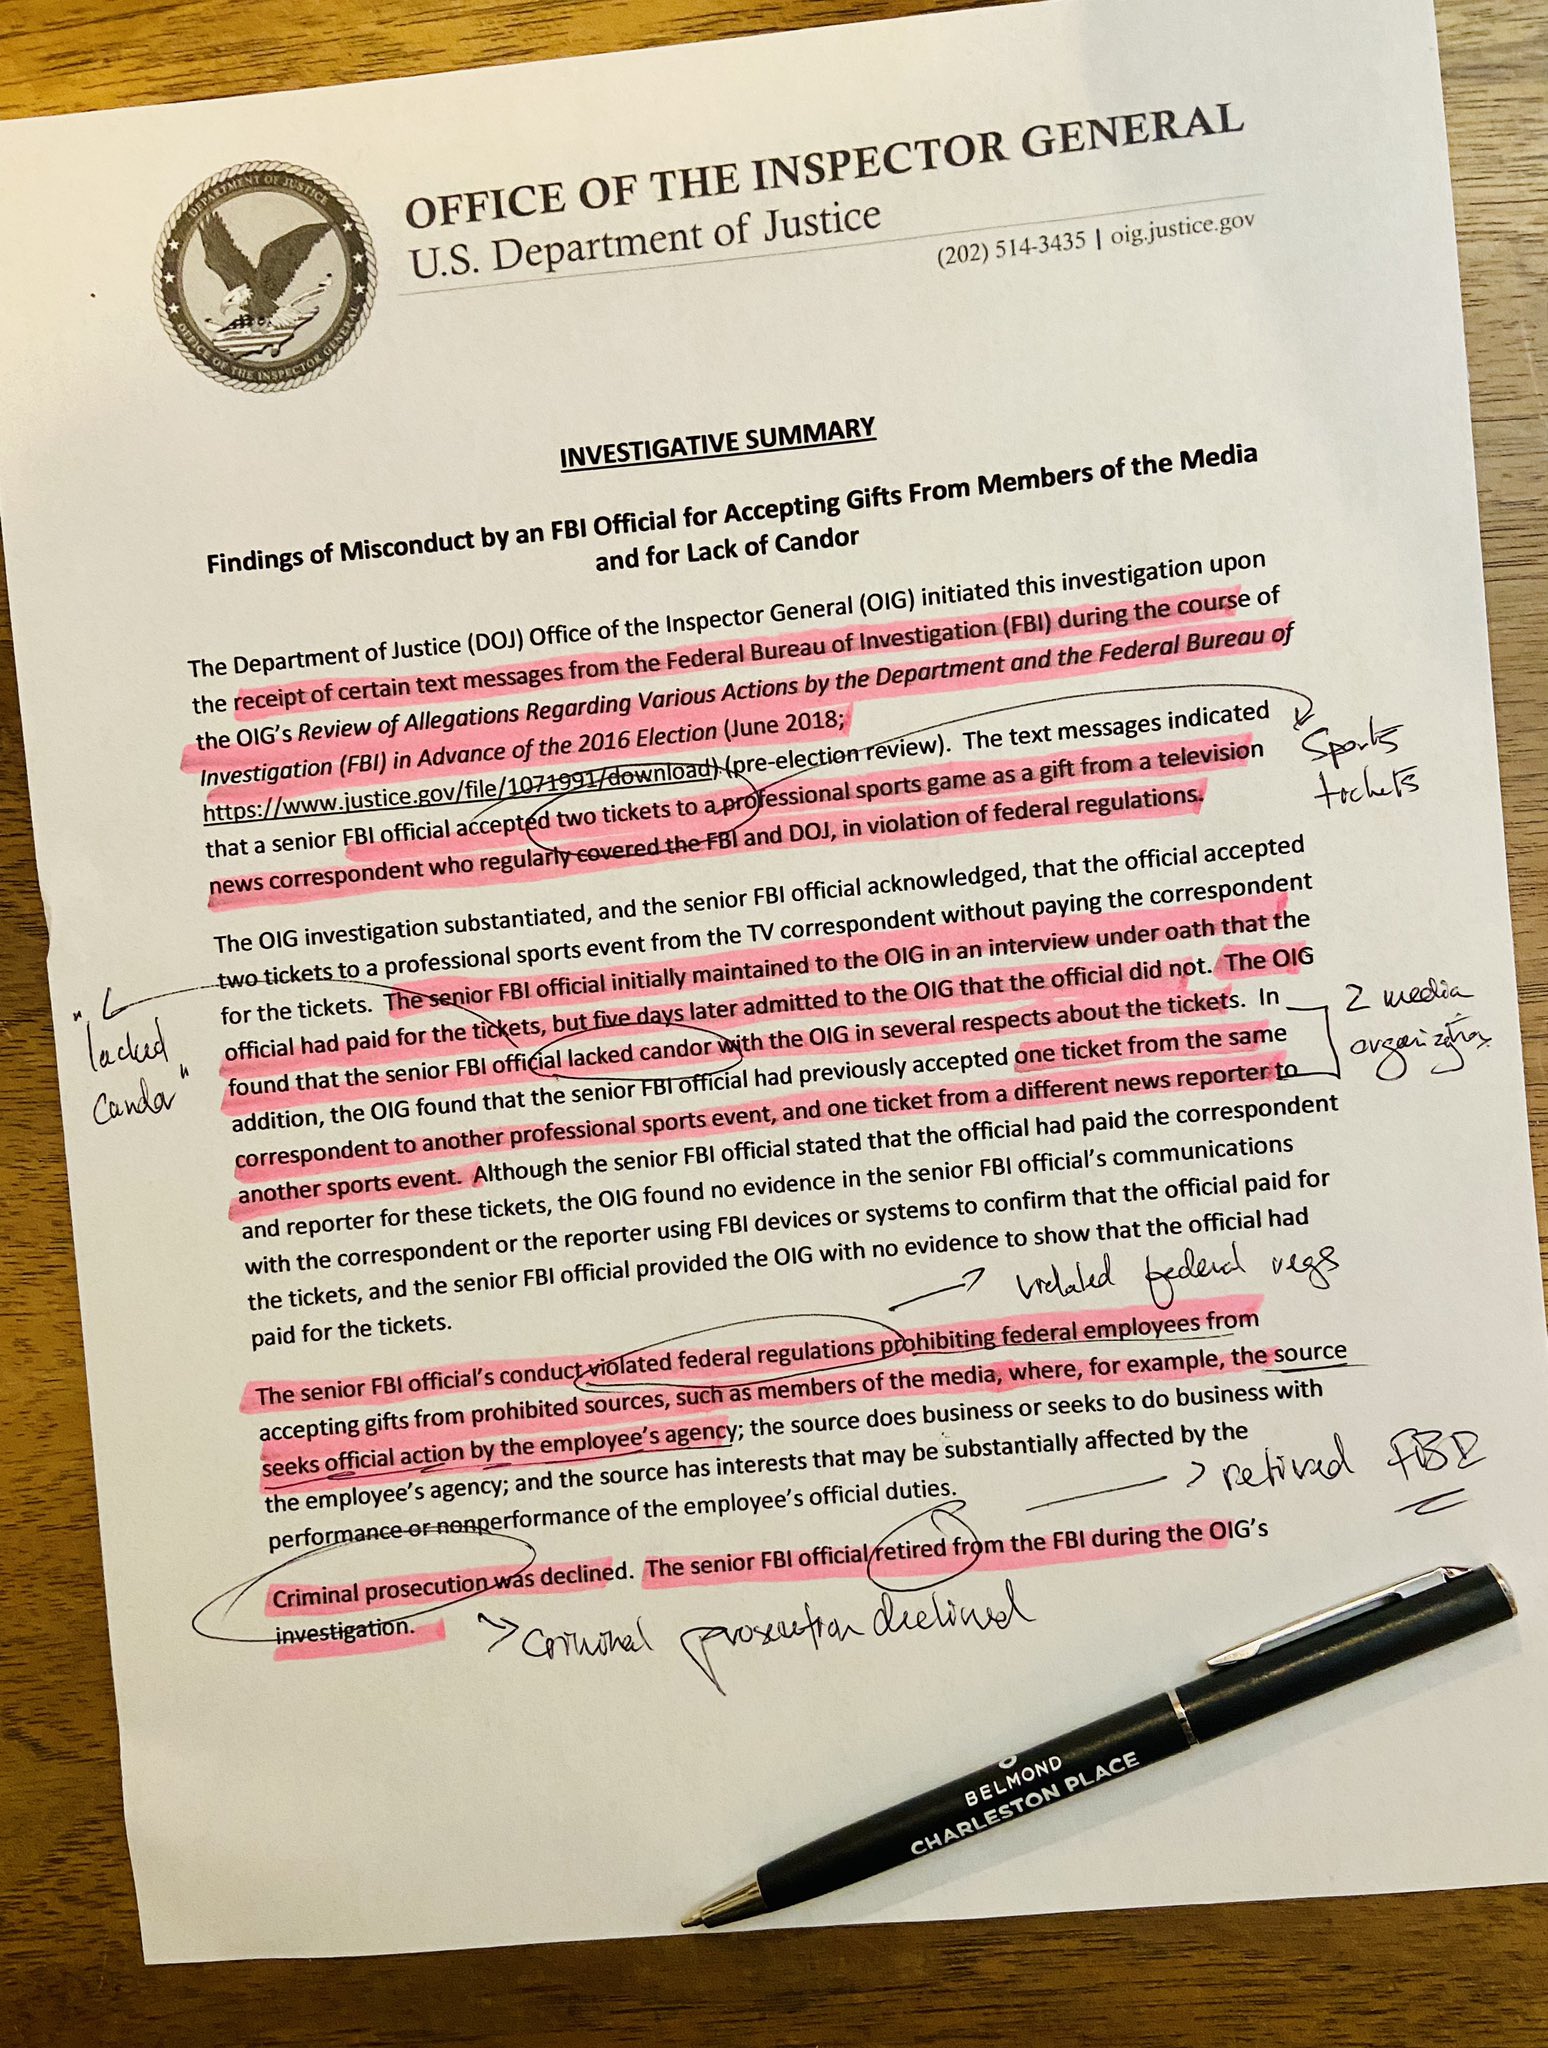 DEPARTMENT OF JUSTICE
OFFICE OF THE INSPECTOR GENERAL
OFFICE OF THE INSPECTOR GENERAL
U.S. Department of Justice
(202) 514-3435 | oig.justice.gov
INVESTIGATIVE SUMMARY
Findings of Misconduct by an FBI Official for Accepting Gifts From Members of the Media
and for Lack of Candor
The Department of Justice (DOJ) Office of the Inspector General (OIG) initiated this investigation upon
the receipt of certain text messages from the Federal Bureau of Investigation (FBI) during the course of
the OIG's Review of Allegations Regarding Various Actions by the Department and the Federal Bureau of
Investigation (FBI) in Advance of the 2016 Election (June 2018;
https://www.justice.gov/file/1071991/download) (pre-election review). The text messages indicated
that a senior FBI official accepted two tickets to a professional sports game as a gift from a television
news correspondent who regularly covered the FBI and DOJ, in violation of federal regulations.
Sports
tickets
The OIG investigation substantiated, and the senior FBI official acknowledged, that the official accepted
two tickets to a professional sports event from the TV correspondent without paying the correspondent
for the tickets. The senior FBI official initially maintained to the OIG in an interview under oath that the
official had paid for the tickets, but five days later admitted to the OIG that the official did not. The OIG
found that the senior FBI official lacked candor with the OIG in several respects about the tickets. In
addition, the OIG found that the senior FBI official had previously accepted one ticket from the same
correspondent to another professional sports event, and one ticket from a different news reporter to
another sports event. Although the senior FBI official stated that the official had paid the correspondent
and reporter for these tickets, the OIG found no evidence in the senior FBI official's communications
with the correspondent or the reporter using FBI devices or systems to confirm that the official paid for
the tickets, and the senior FBI official provided the OIG with no evidence to show that the official had
paid for the tickets.
"lacked
candor"
2 media
organizations
violated federal regs
The senior FBI official's conduct violated federal regulations prohibiting federal employees from
accepting gifts from prohibited sources, such as members of the media, where, for example, the source
seeks official action by the employee's agency; the source does business or seeks to do business with
the employee's agency; and the source has interests that may be substantially affected by the
performance or nonperformance of the employee's official duties.
retired FBI
Criminal prosecution was declined. The senior FBI official retired from the FBI during the OIG's
investigation.
criminal prosecution declined
BELMOND
CHARLESTON PLACE